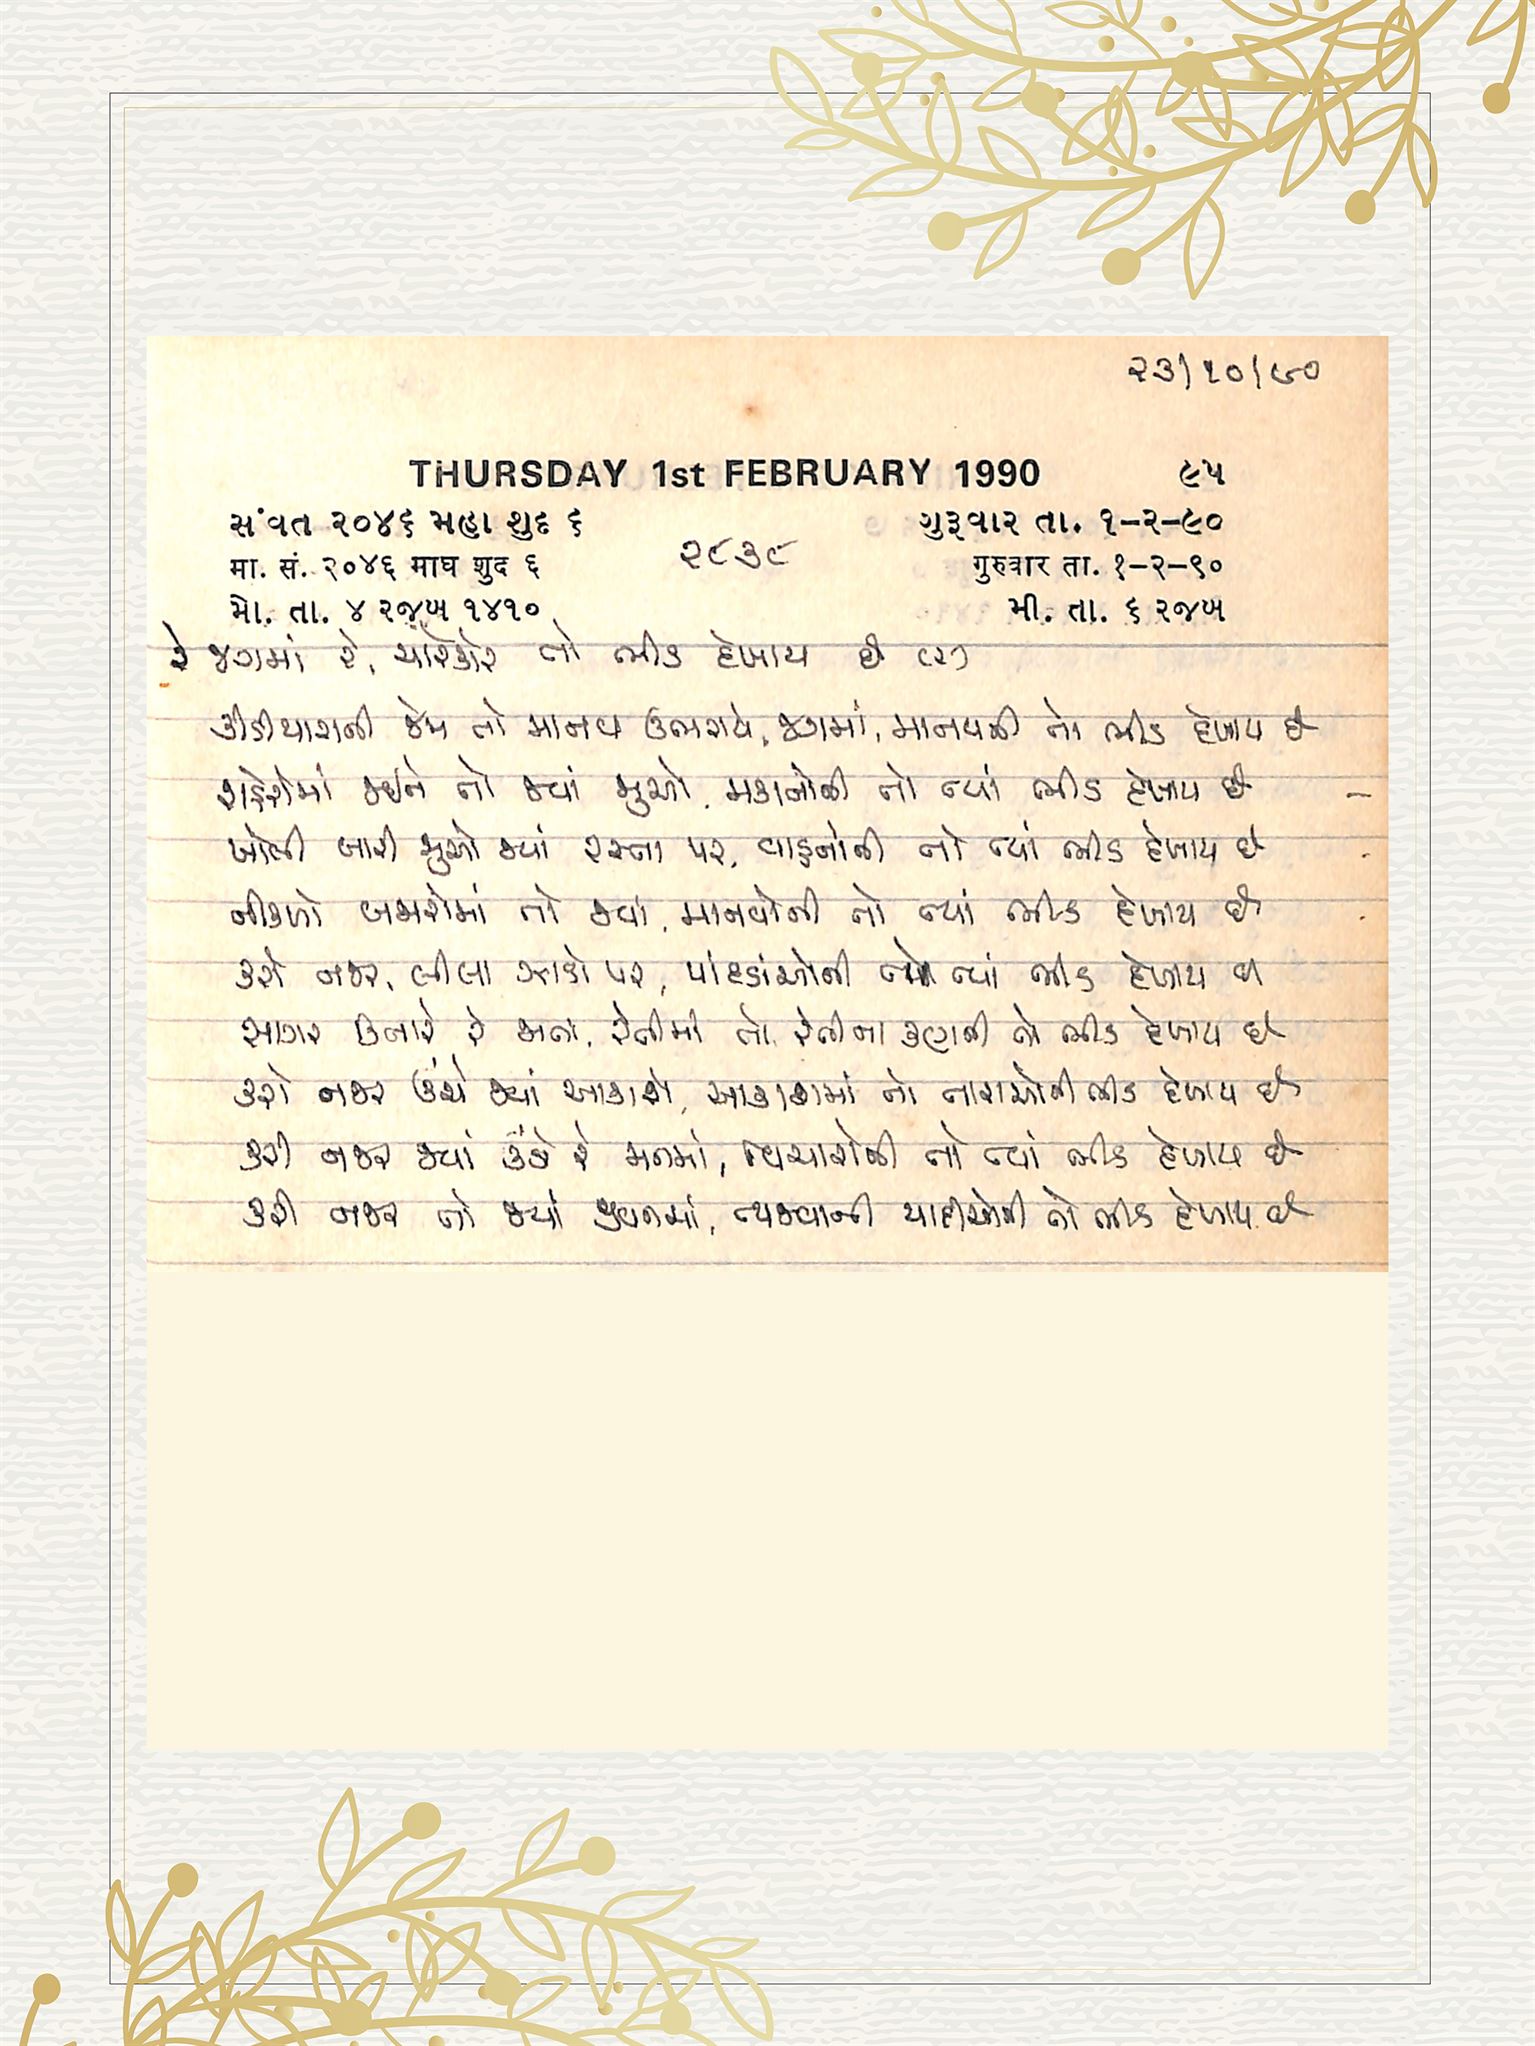 ૨૩/૧૦/૯૦
THURSDAY 1st FEBRUARY 1990 ૯૫
સંવત ૨૦૪૬ મહા શુદ ૬ ગુરૂવાર તા. ૧-૨-૯૦
૨૮૩૮
मा. सं. २०४६ माघ शुद ६ गुरुवार ता. १-२-९०
મો. તા. ૪ રજબ ૧૪૧૦ મી. તા. ૬ રજબ
રે જગમાં રે, ચારેકોર તો ભીડ દેખાય છે (૨)
કીડીયારાની જેમ તો માનવ ઉભરાયે, જગમાં, માનવની તો ભીડ દેખાય છે
શહેરોમાં જઈને તો જ્યાં જુઓ, મકાનોની તો ત્યાં ભીડ દેખાય છે
ખોલી બારી જુઓ જ્યાં રસ્તા પર, વાહનોની તો ત્યાં ભીડ દેખાય છે
નીકળો બજારોમાં તો જ્યાં, માનવોની તો ત્યાં ભીડ દેખાય છે
કરો નજર, લીલા ઝાડો પર, પાંદડાંઓની તો ત્યાં ભીડ દેખાય છે
સાગર કિનારે રે જાતા, રેતીમાં તો, રેતીના કણની તો ભીડ દેખાય છે
કરો નજર ઉંચે જ્યાં આકાશે, આકાશમાં તો તારાઓની ભીડ દેખાય છે
કરી નજર જ્યાં ઊંડે રે મનમાં, વિચારોની તો ત્યાં ભીડ દેખાય છે
કરી નજર તો જ્યાં જીવનમાં, ત્યજવાની યાદીઓની તો ભીડ દેખાય છે